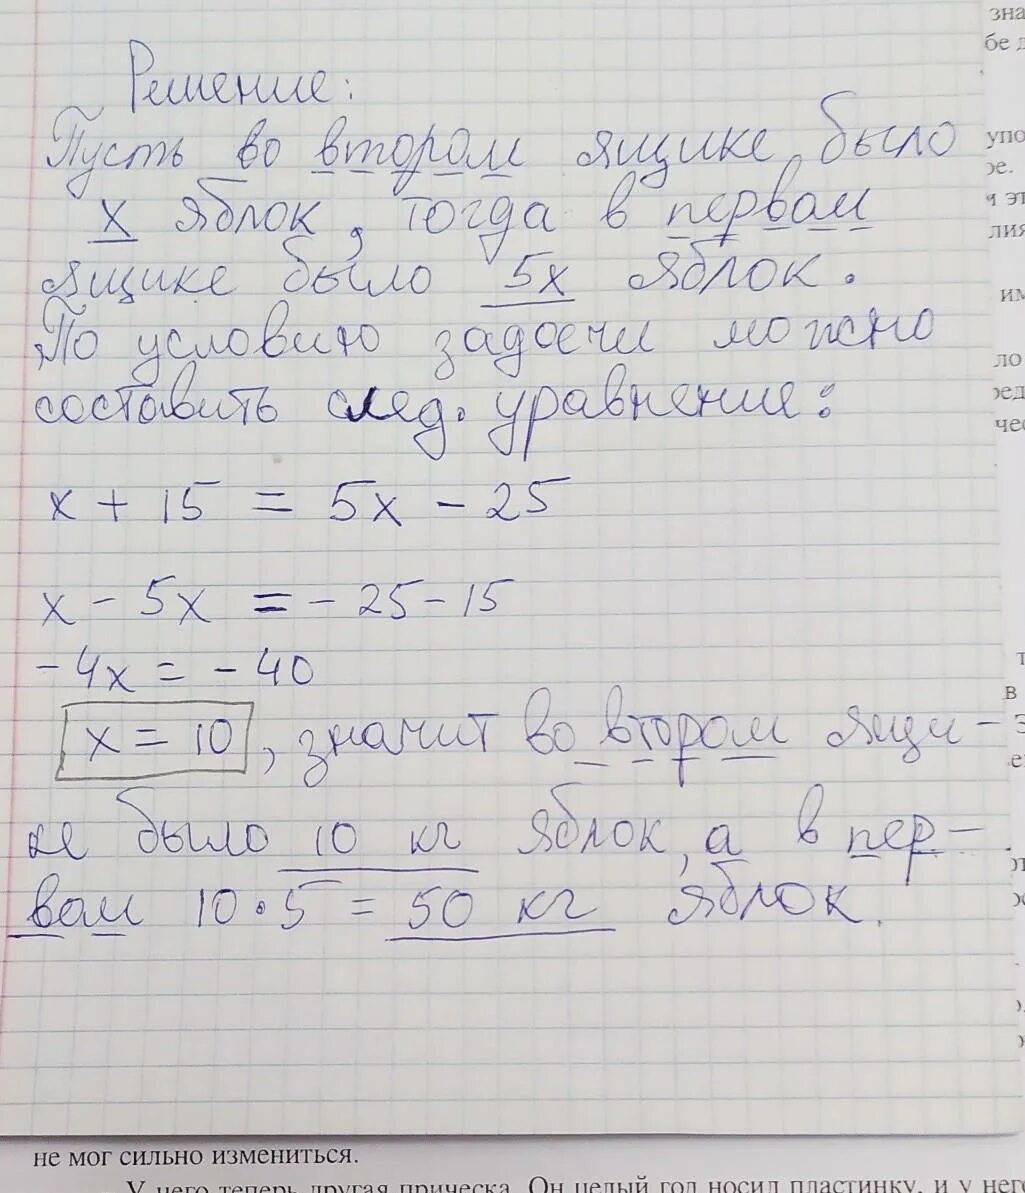 Решение:
Пусть во втором ящике было
x яблок, тогда в первом
ящике было 5x яблок.
По условию задачи можно
составить след. уравнение:
x + 15 = 5x - 25
x - 5x = - 25 - 15
- 4x = - 40
x = 10, значит во втором ящи-
ке было 10 кг яблок, а в пер-
вом 10·5 = 50 кг яблок.
не мог сильно измениться.
У него теперь другая прическа. Он целый год носил пластинку, и у него